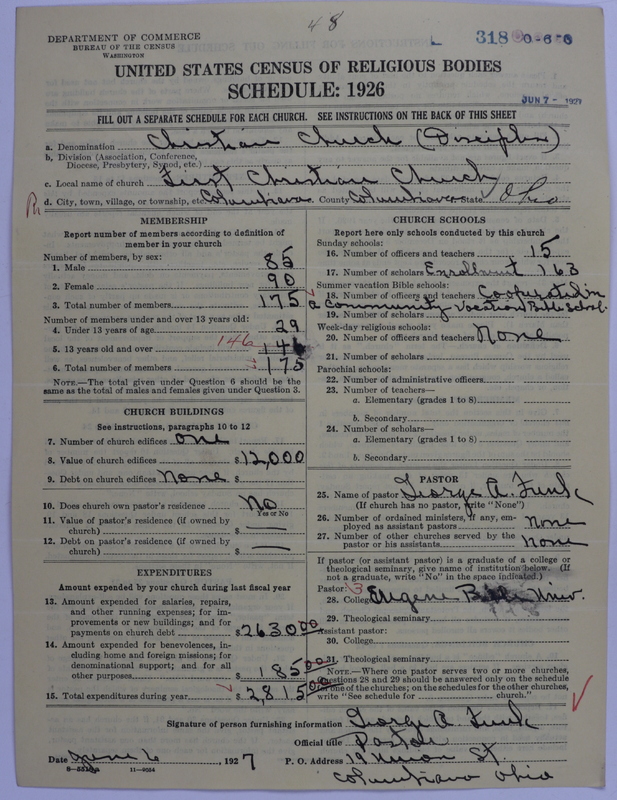 48
DEPARTMENT OF COMMERCE
BUREAU OF THE CENSUS
WASHINGTON
318 0-6-8
UNITED STATES CENSUS OF RELIGIOUS BODIES
SCHEDULE: 1926
JUN 7 - 1927
FILL OUT A SEPARATE SCHEDULE FOR EACH CHURCH. SEE INSTRUCTIONS ON THE BACK OF THIS SHEET
a. Denomination Christian Church (Disciples)
b. Division (Association, Conference,
Diocese, Presbytery, Synod, etc.)
c. Local name of church First Christian Church
d. City, town, village, or township, etc. Columbiana County Columbiana State Ohio
MEMBERSHIP
Report number of members according to definition of
member in your church
Number of members, by sex:
1. Male 85
2. Female 90
3. Total number of members 175
Number of members under and over 13 years old:
4. Under 13 years of age 29
5. 13 years old and over 146 146
6. Total number of members 175
NOTE.—The total given under Question 6 should be the
same as the total of males and females given under Question 3.
CHURCH BUILDINGS
See instructions, paragraphs 10 to 12
7. Number of church edifices one
8. Value of church edifices $12,000
9. Debt on church edifices None $
10. Does church own pastor's residence No
Yes or No
11. Value of pastor's residence (if owned by
church) $ —
12. Debt on pastor's residence (if owned by
church) $ —
EXPENDITURES
Amount expended by your church during last fiscal year
13. Amount expended for salaries, repairs,
and other running expenses; for im-
provements or new buildings; and for
payments on church debt $2630.00
14. Amount expended for benevolences, in-
cluding home and foreign missions; for
denominational support; and for all
other purposes $185.00
15. Total expenditures during year $2815.00
CHURCH SCHOOLS
Report here only schools conducted by this church
Sunday schools:
16. Number of officers and teachers 15
17. Number of scholars Enrollment 163
Summer vacation Bible schools:
18. Number of officers and teachers Cooperated in
a Community Vacation Bible School.
19. Number of scholars
Week-day religious schools:
20. Number of officers and teachers None
21. Number of scholars
Parochial schools:
22. Number of administrative officers
23. Number of teachers—
a. Elementary (grades 1 to 8)
b. Secondary
24. Number of scholars—
a. Elementary (grades 1 to 8)
b. Secondary
PASTOR
25. Name of pastor George A. Funk
(If church has no pastor, write "None")
26. Number of ordained ministers, if any, em-
ployed as assistant pastors None
27. Number of other churches served by the
pastor or his assistants None
If pastor (or assistant pastor) is a graduate of a college or
theological seminary, give name of institution below. (If
not a graduate, write "No" in the space indicated.)
Pastor:
28. College Eugene Bible Univ.
29. Theological seminary
Assistant pastor:
30. College
31. Theological seminary
NOTE.—Where one pastor serves two or more churches,
Questions 28 and 29 should be answered only on the schedule
for one of the churches; on the schedules for the other churches,
write "See schedule for church."
Signature of person furnishing information George A. Funk
Official title Pastor
Date June 6, 1927 P. O. Address 19 Union St.
Columbiana Ohio
11-9054